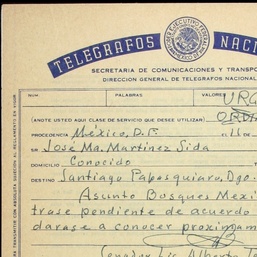 TELEGRAFOS NACI
PODER EJECUTIVO FEDERAL
SECRETARIA DE COMUNICACIONES Y TRANSPO
DIRECCION GENERAL DE TELEGRAFOS NACIONAL
NUM. PALABRAS VALORES URG
(ANOTE USTED AQUI CLASE DE SERVICIO QUE DESEE UTILIZAR) ORDI
PROCEDENCIA México, D.F.
SR José Ma. Martínez Sida
DOMICILIO Conocido
DESTINO Santiago Papasquiaro, Dgo.
Asunto Bosques Mexi
trase pendiente de acuerdo
darase a conocer proximam
Senador Lic Alberto Te